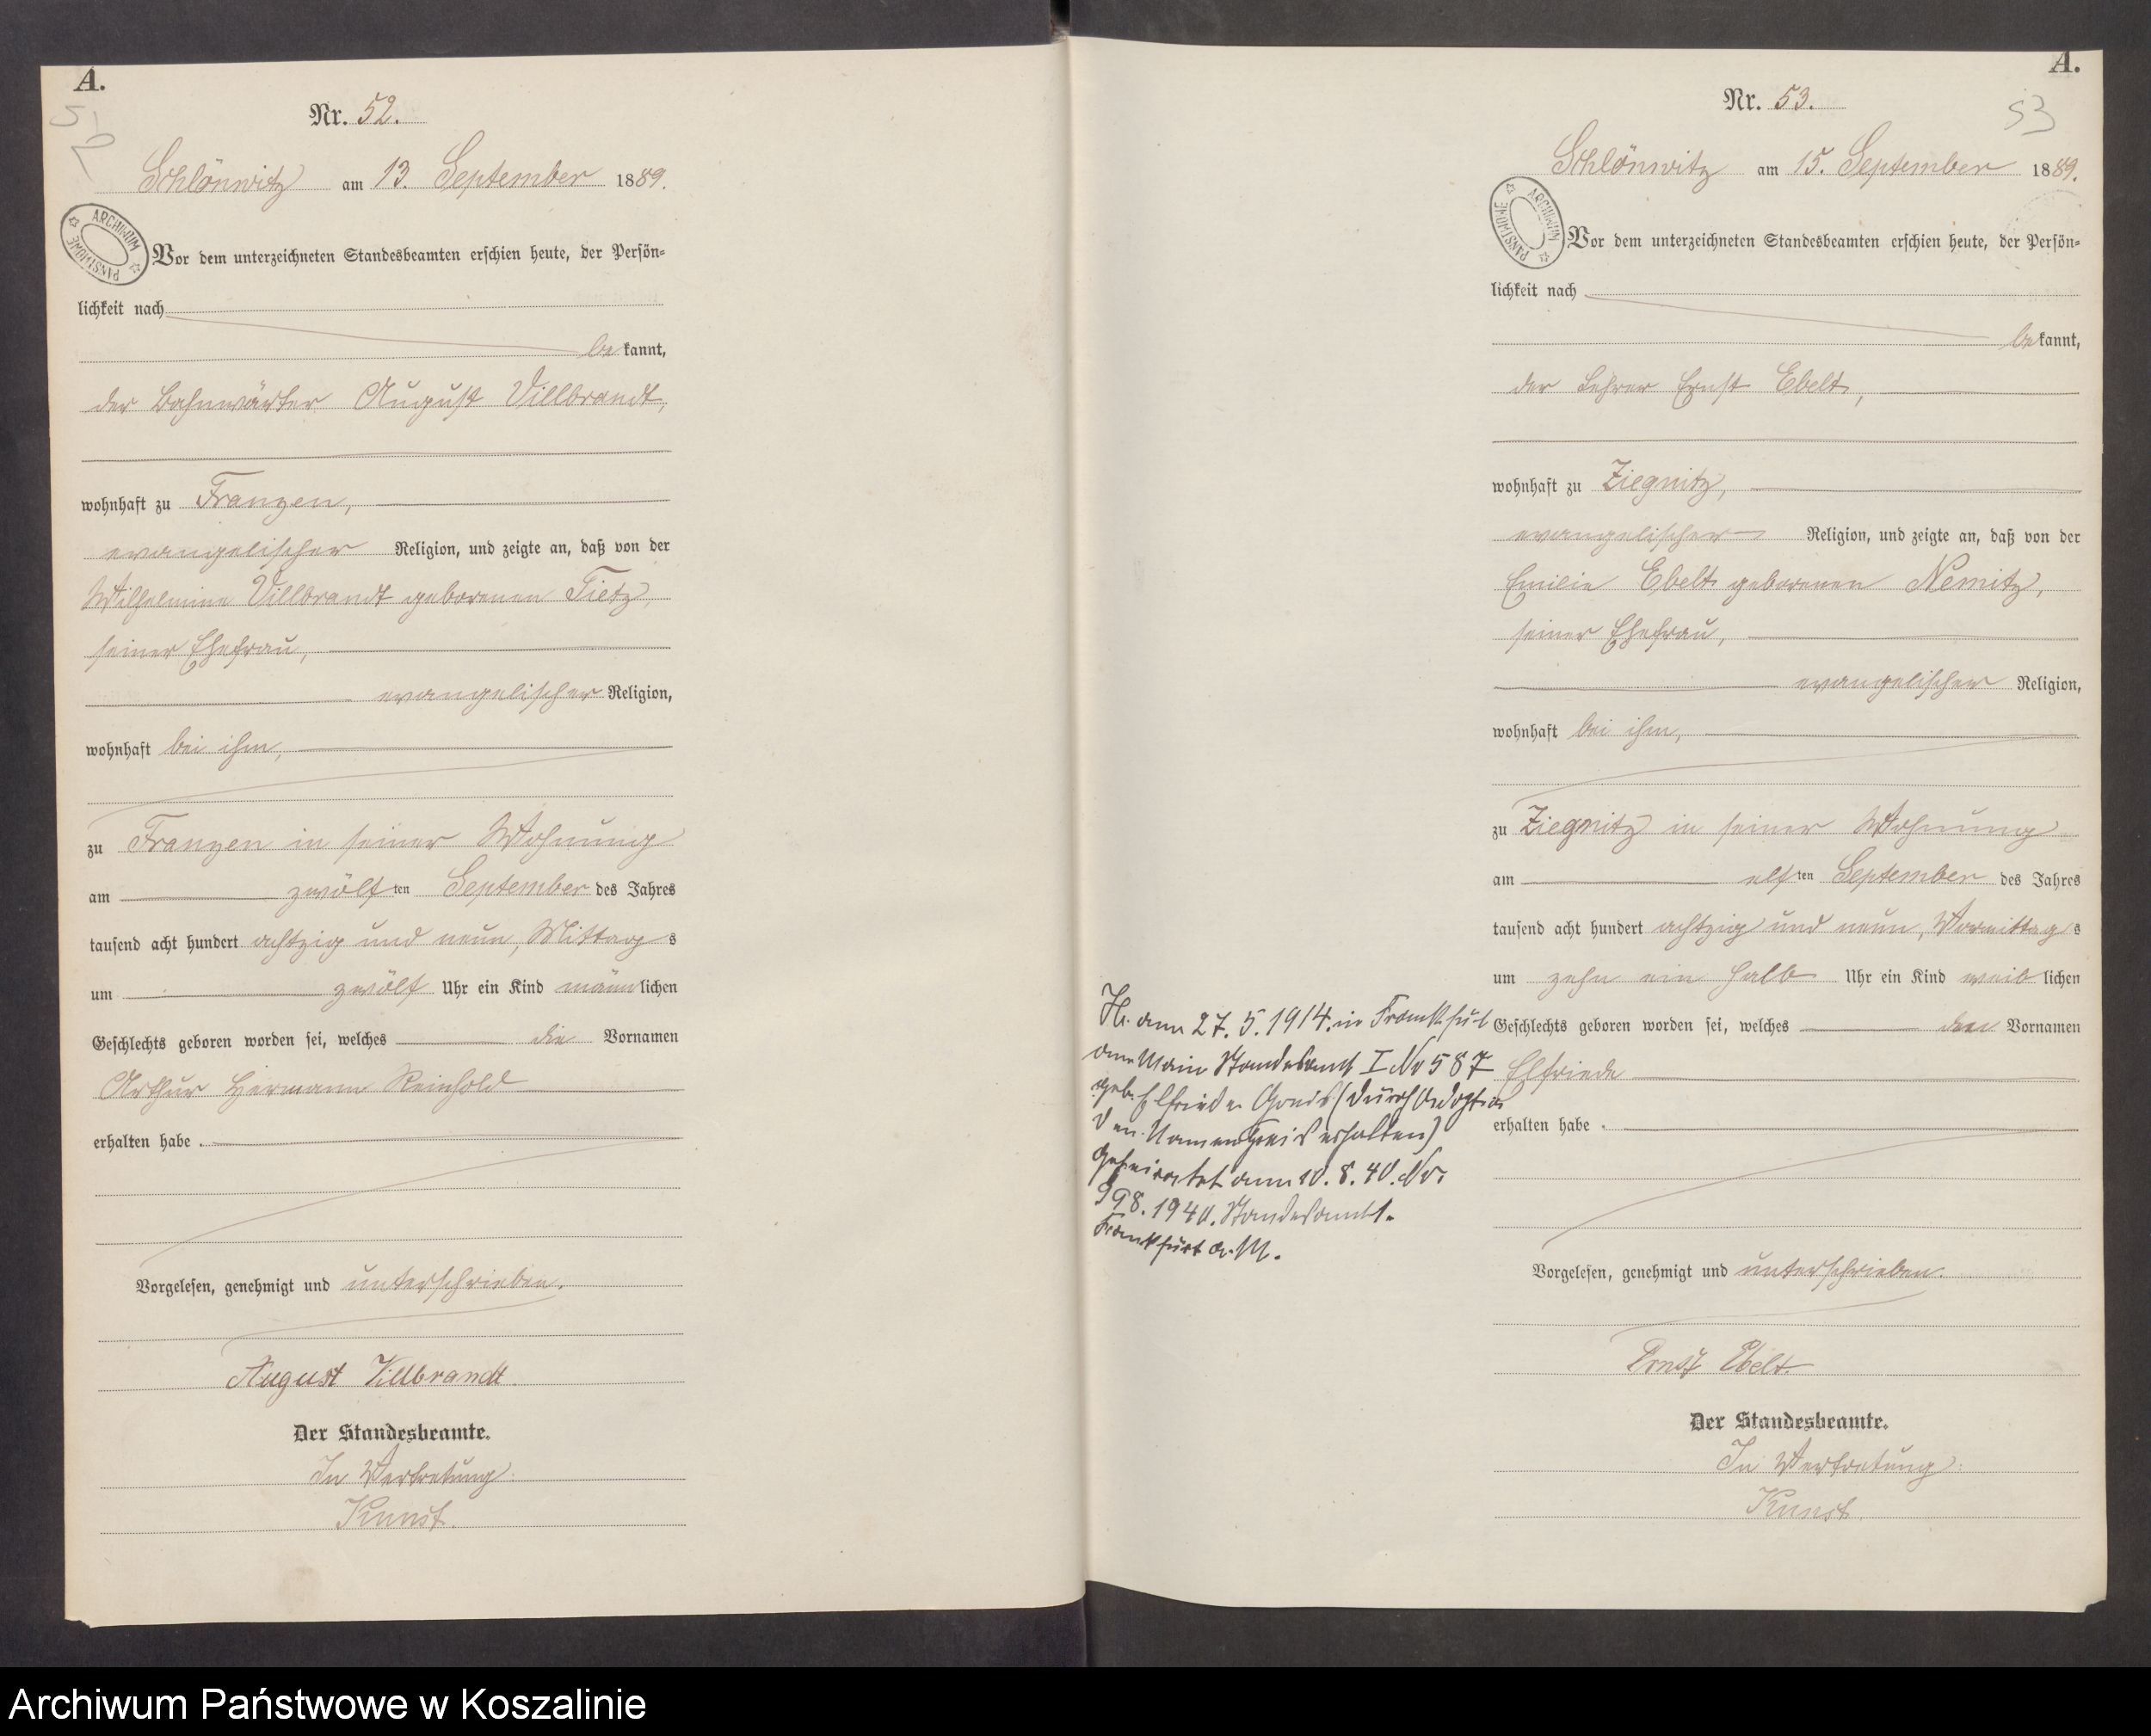 A.
Nr. 52.
52
Schlönwitz am 13. September 1889.
ARCHIWUM PAŃSTWOWE
Vor dem unterzeichneten Standesbeamten erschien heute, der Persön-
lichkeit nach
bekannt,
der Bahnwärter August Villbrandt,
wohnhaft zu Franzen,
evangelischer Religion, und zeigte an, daß von der
Wilhelmine Villbrandt geborenen Tietz,
seiner Ehefrau,
evangelischer Religion,
wohnhaft bei ihm,
zu Franzen in seiner Wohnung
am zwölften September des Jahres
tausend acht hundert achtzig und neun, Mittags
um zwölf Uhr ein Kind männlichen
Geschlechts geboren worden sei, welches die Vornamen
Arthur Hermann Reinhold
erhalten habe.
Vorgelesen, genehmigt und unterschrieben.
August Villbrandt
Der Standesbeamte.
In Vertretung:
Kunst.
A.
Nr. 53.
53
Schlönwitz am 15. September 1889.
ARCHIWUM PAŃSTWOWE
Vor dem unterzeichneten Standesbeamten erschien heute, der Persön-
lichkeit nach
bekannt,
der Lehrer Ernst Ebelt,
wohnhaft zu Ziegnitz,
evangelischer Religion, und zeigte an, daß von der
Emilie Ebelt geborenen Nemitz,
seiner Ehefrau,
evangelischer Religion,
wohnhaft bei ihm,
zu Ziegnitz in seiner Wohnung
am elften September des Jahres
tausend acht hundert achtzig und neun, Vormittags
um zehn ein halb Uhr ein Kind weiblichen
Geschlechts geboren worden sei, welches den Vornamen
Elfriede
erhalten habe.
Vorgelesen, genehmigt und unterschrieben.
Ernst Ebelt.
Der Standesbeamte.
In Vertretung:
Kunst.
am 27. 5. 1914. in Frankfurt
am Main Standesamt I No 587
geb. Elfriede (durch Adoption
den Namen erhalten)
geheiratet am 10. 8. 40. No.
998. 1940. Standesamt 1.
Frankfurt a. M.
Archiwum Państwowe w Koszalinie